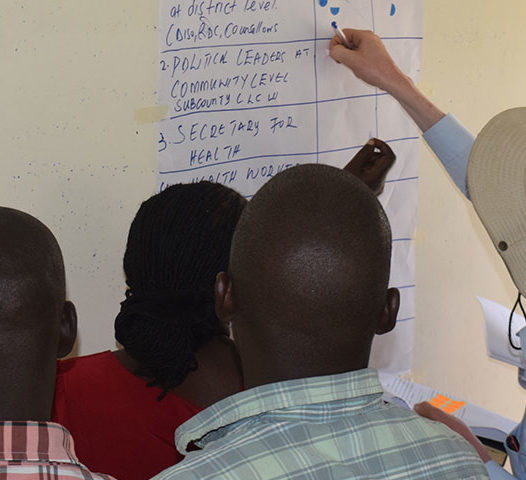 at district level.
(DISO, RDC, Counsellors
2. POLITICAL LEADERS AT
COMMUNITY LEVEL
SUBCOUNTY LLC
3. SECRETARY FOR
HEALTH
HEALTH WORK